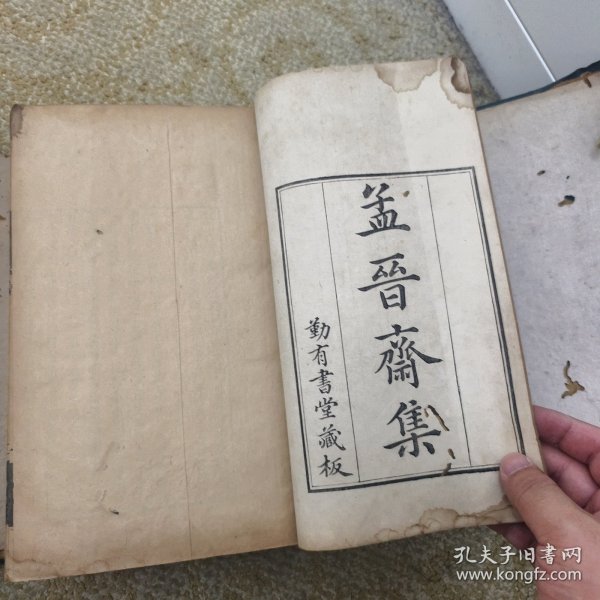 孟晉齋集
勤有書堂藏板
孔夫子旧书网
www.kongfz.com